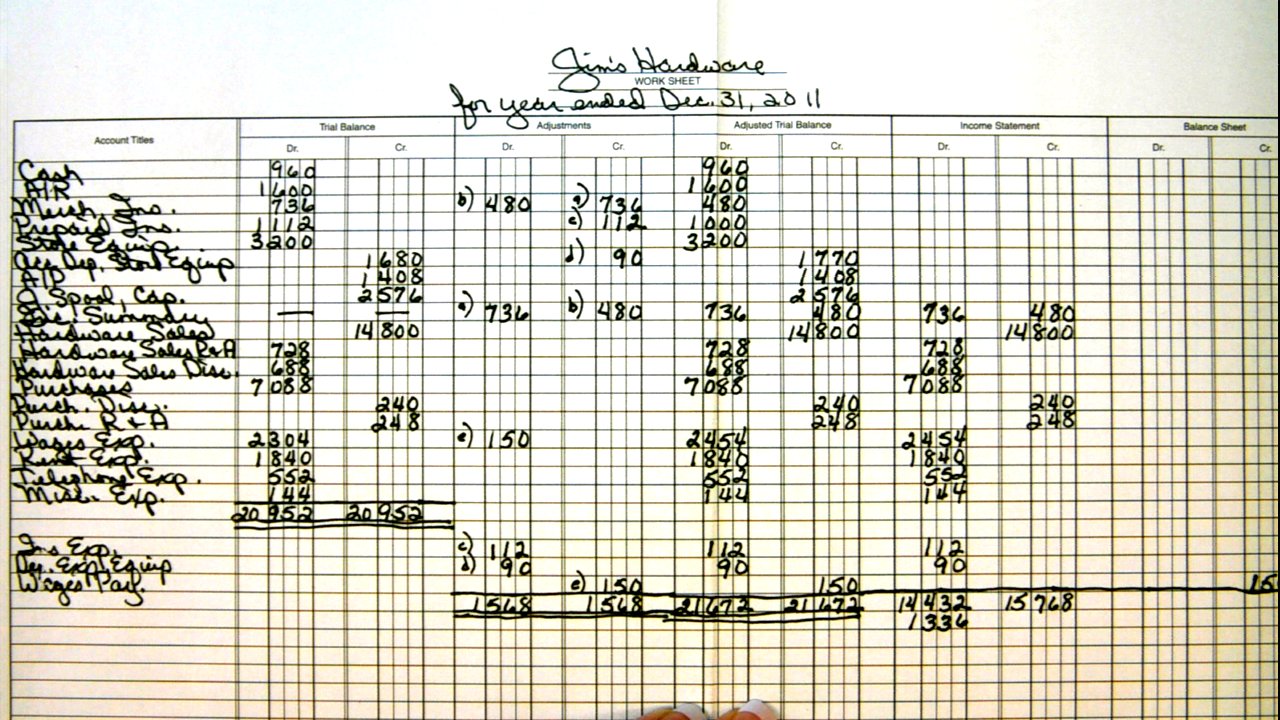 Jim's Hardware
WORK SHEET
for year ended Dec. 31, 2011
Account Titles Trial Balance Adjustments Adjusted Trial Balance Income Statement Balance Sheet
Dr. Cr. Dr. Cr. Dr. Cr. Dr. Cr. Dr. Cr.
Cash 960 960
A/R 1600 1600
Merch. Inv. 736 b) 480 a) 736 480
Prepaid Ins. 1112 c) 112 1000
Store Equip. 3200 3200
Acc. Dep. Store Equip 1680 d) 90 1770
A/P 1408 1408
J. Spool, Cap. 2576 2576
Inc. Summary — — a) 736 b) 480 736 480 736 480
Hardware Sales 14800 14800 14800
Hardware Sales R&A 728 728 728
Hardware Sales Disc. 688 688 688
Purchases 7088 7088 7088
Purch. Disc. 240 240 240
Purch. R & A 248 248 248
Wages Exp. 2304 e) 150 2454 2454
Rent Exp. 1840 1840 1840
Telephone Exp. 552 552 552
Misc. Exp. 144 144 144
20952 20952
Ins Exp. c) 112 112 112
Dep. Exp. Equip d) 90 90 90
Wages Pay. e) 150 150 15
1568 1568 21672 21672 14432 15768
1336